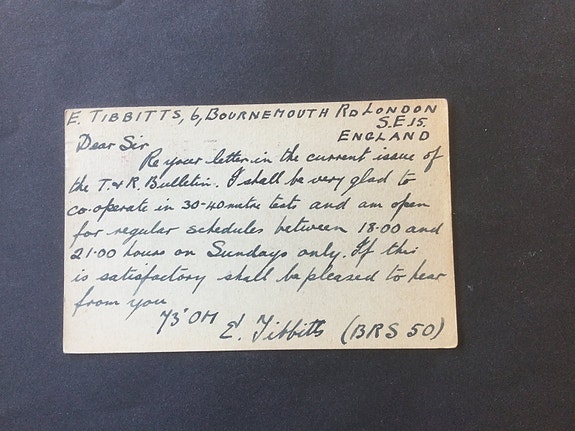 E. TIBBITTS, 6, BOURNEMOUTH RD LONDON
S.E.15.
ENGLAND
Dear Sir
Re your letter in the current issue of
the T. & R. Bulletin. I shall be very glad to
co-operate in 30-40 metre test and am open
for regular schedules between 18.00 and
21.00 hours on Sundays only. If this
is satisfactory shall be pleased to hear
from you
73's OM
E. Tibbitts (BRS 50)